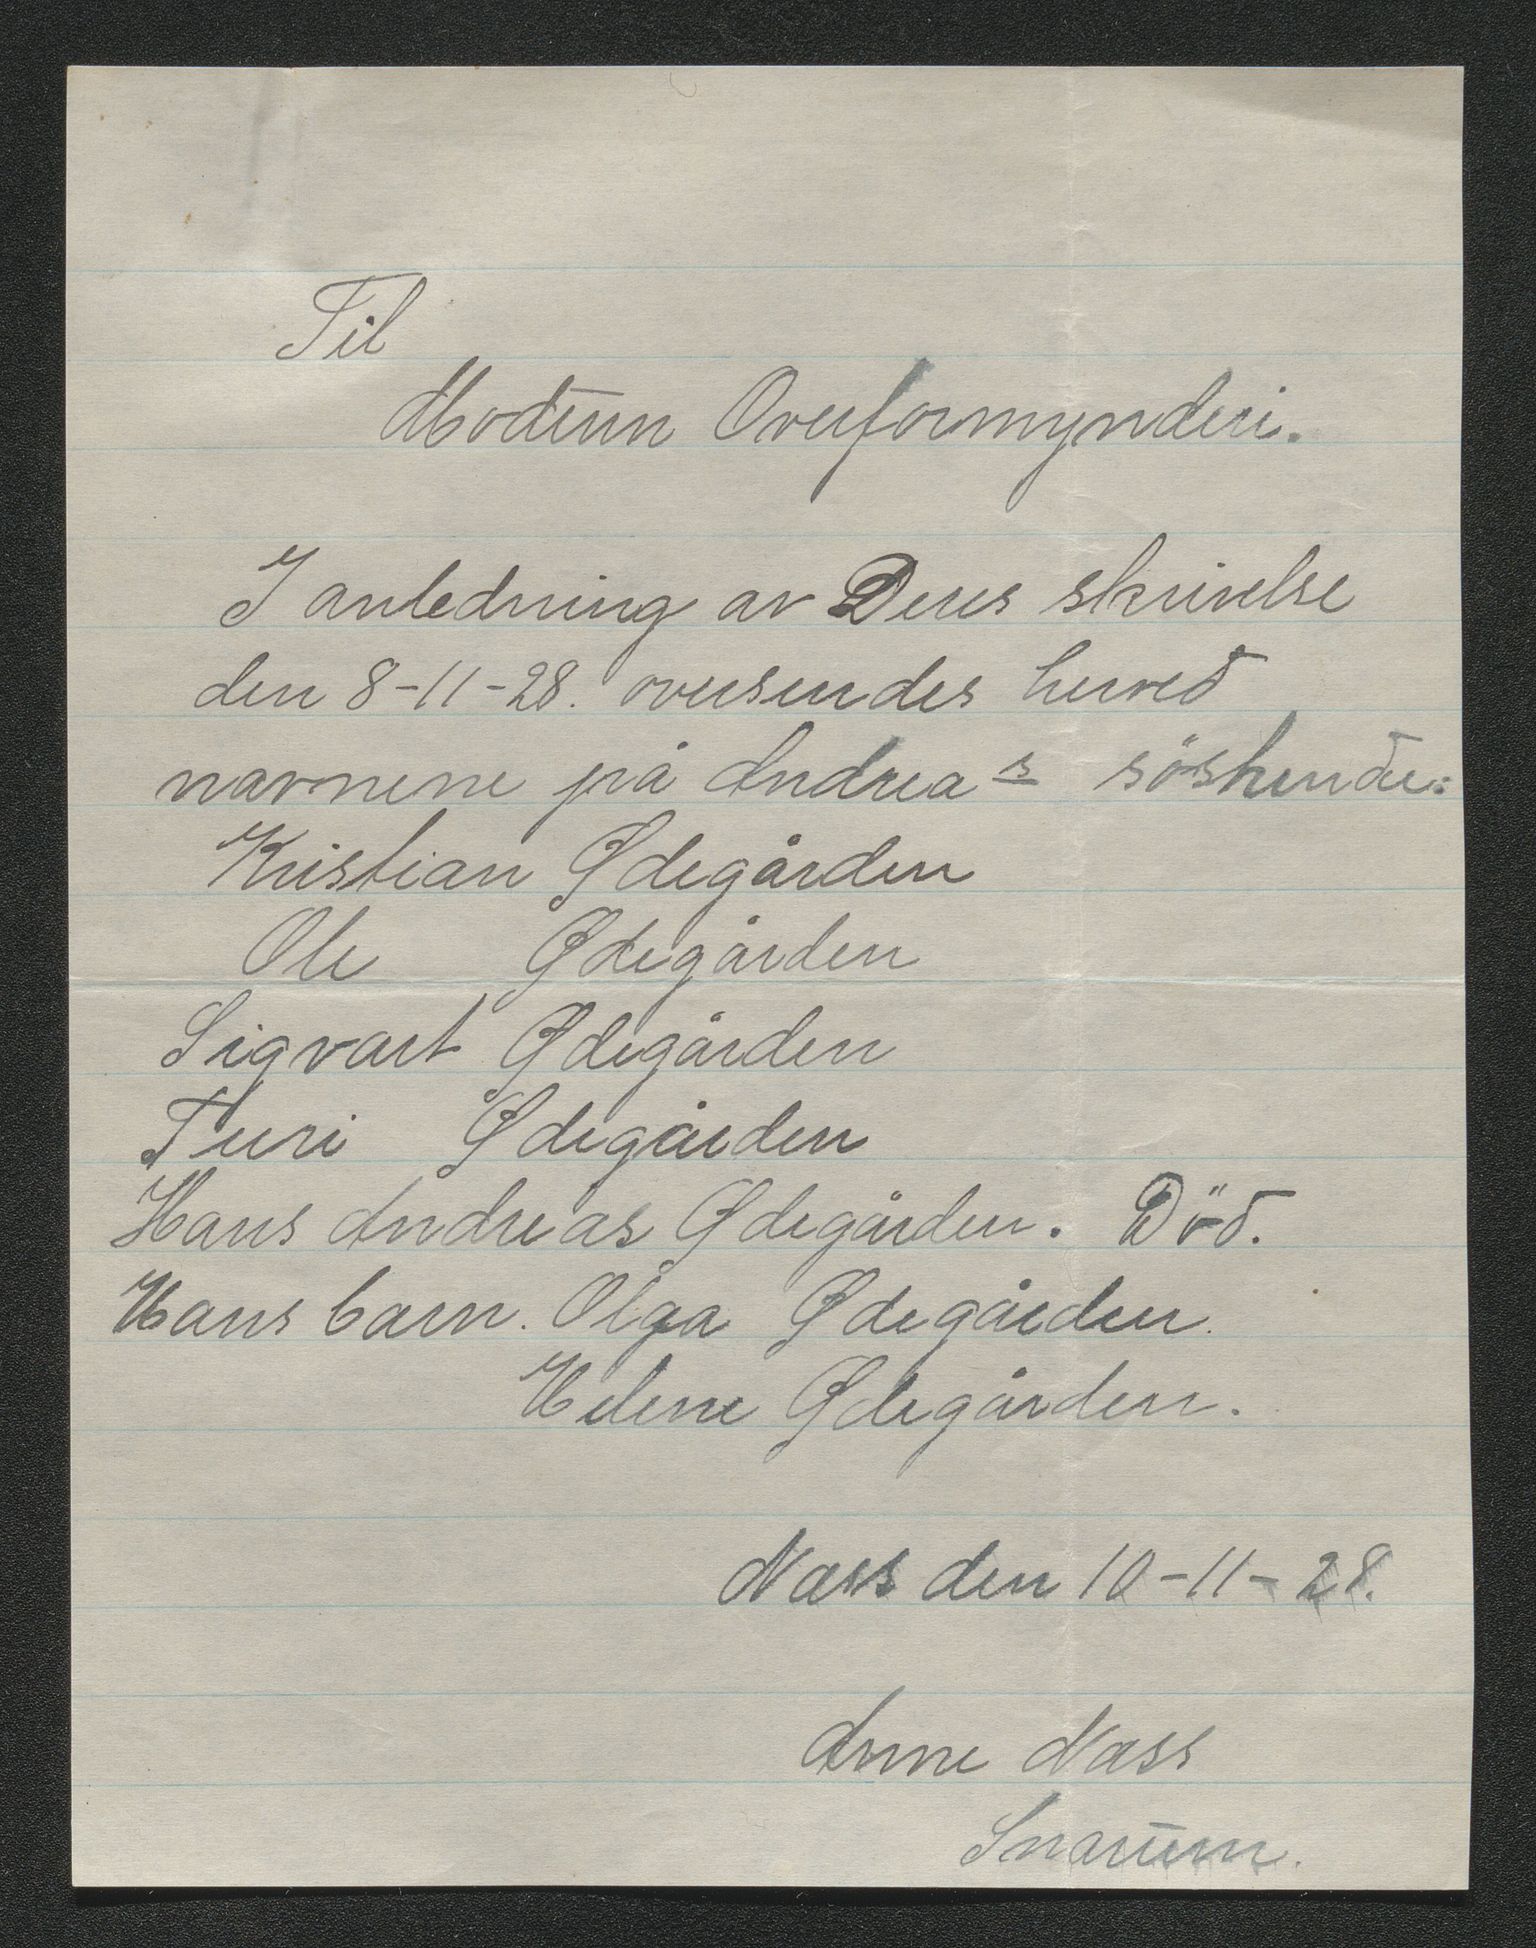 Til
Modum Overformynderi.
I anledning av Deres skrivelse
den 8-11-28. oversendes herved
navnene på Andreas söskender:
Kristian Ødegården
Ole Ødegården
Sigvart Ødegården
Turi Ødegården
Hans Andreas Ødegården. Död.
Hans barn. Olga Ødegården.
Helene Ødegården.
Nass den 10-11-28.
Anne Nass
Snarum.